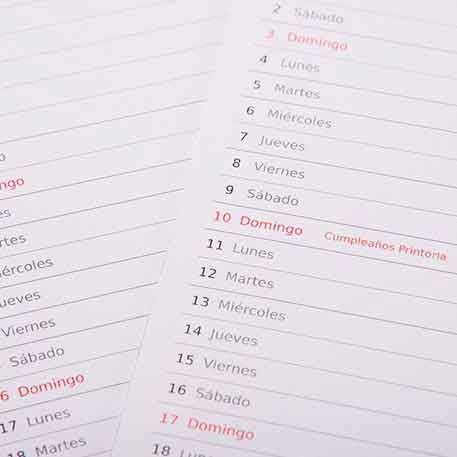 ngo
es
artes
ércoles
ueves
Viernes
Sábado
6 Domingo
17 Lunes
18 Martes
2 Sábado
3 Domingo
4 Lunes
5 Martes
6 Miércoles
7 Jueves
8 Viernes
9 Sábado
10 Domingo Cumpleaños Printoria
11 Lunes
12 Martes
13 Miércoles
14 Jueves
15 Viernes
16 Sábado
17 Domingo
18 Lunes